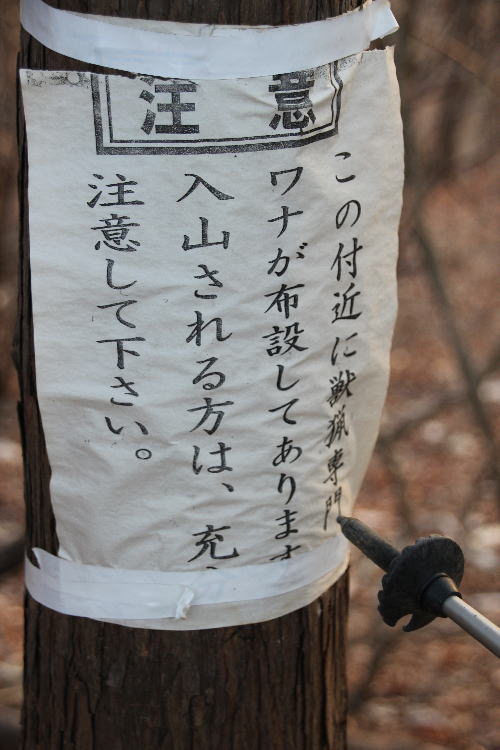 注意
この付近に獣猟専門
ワナが布設してあります
入山される方は、充
注意して下さい。